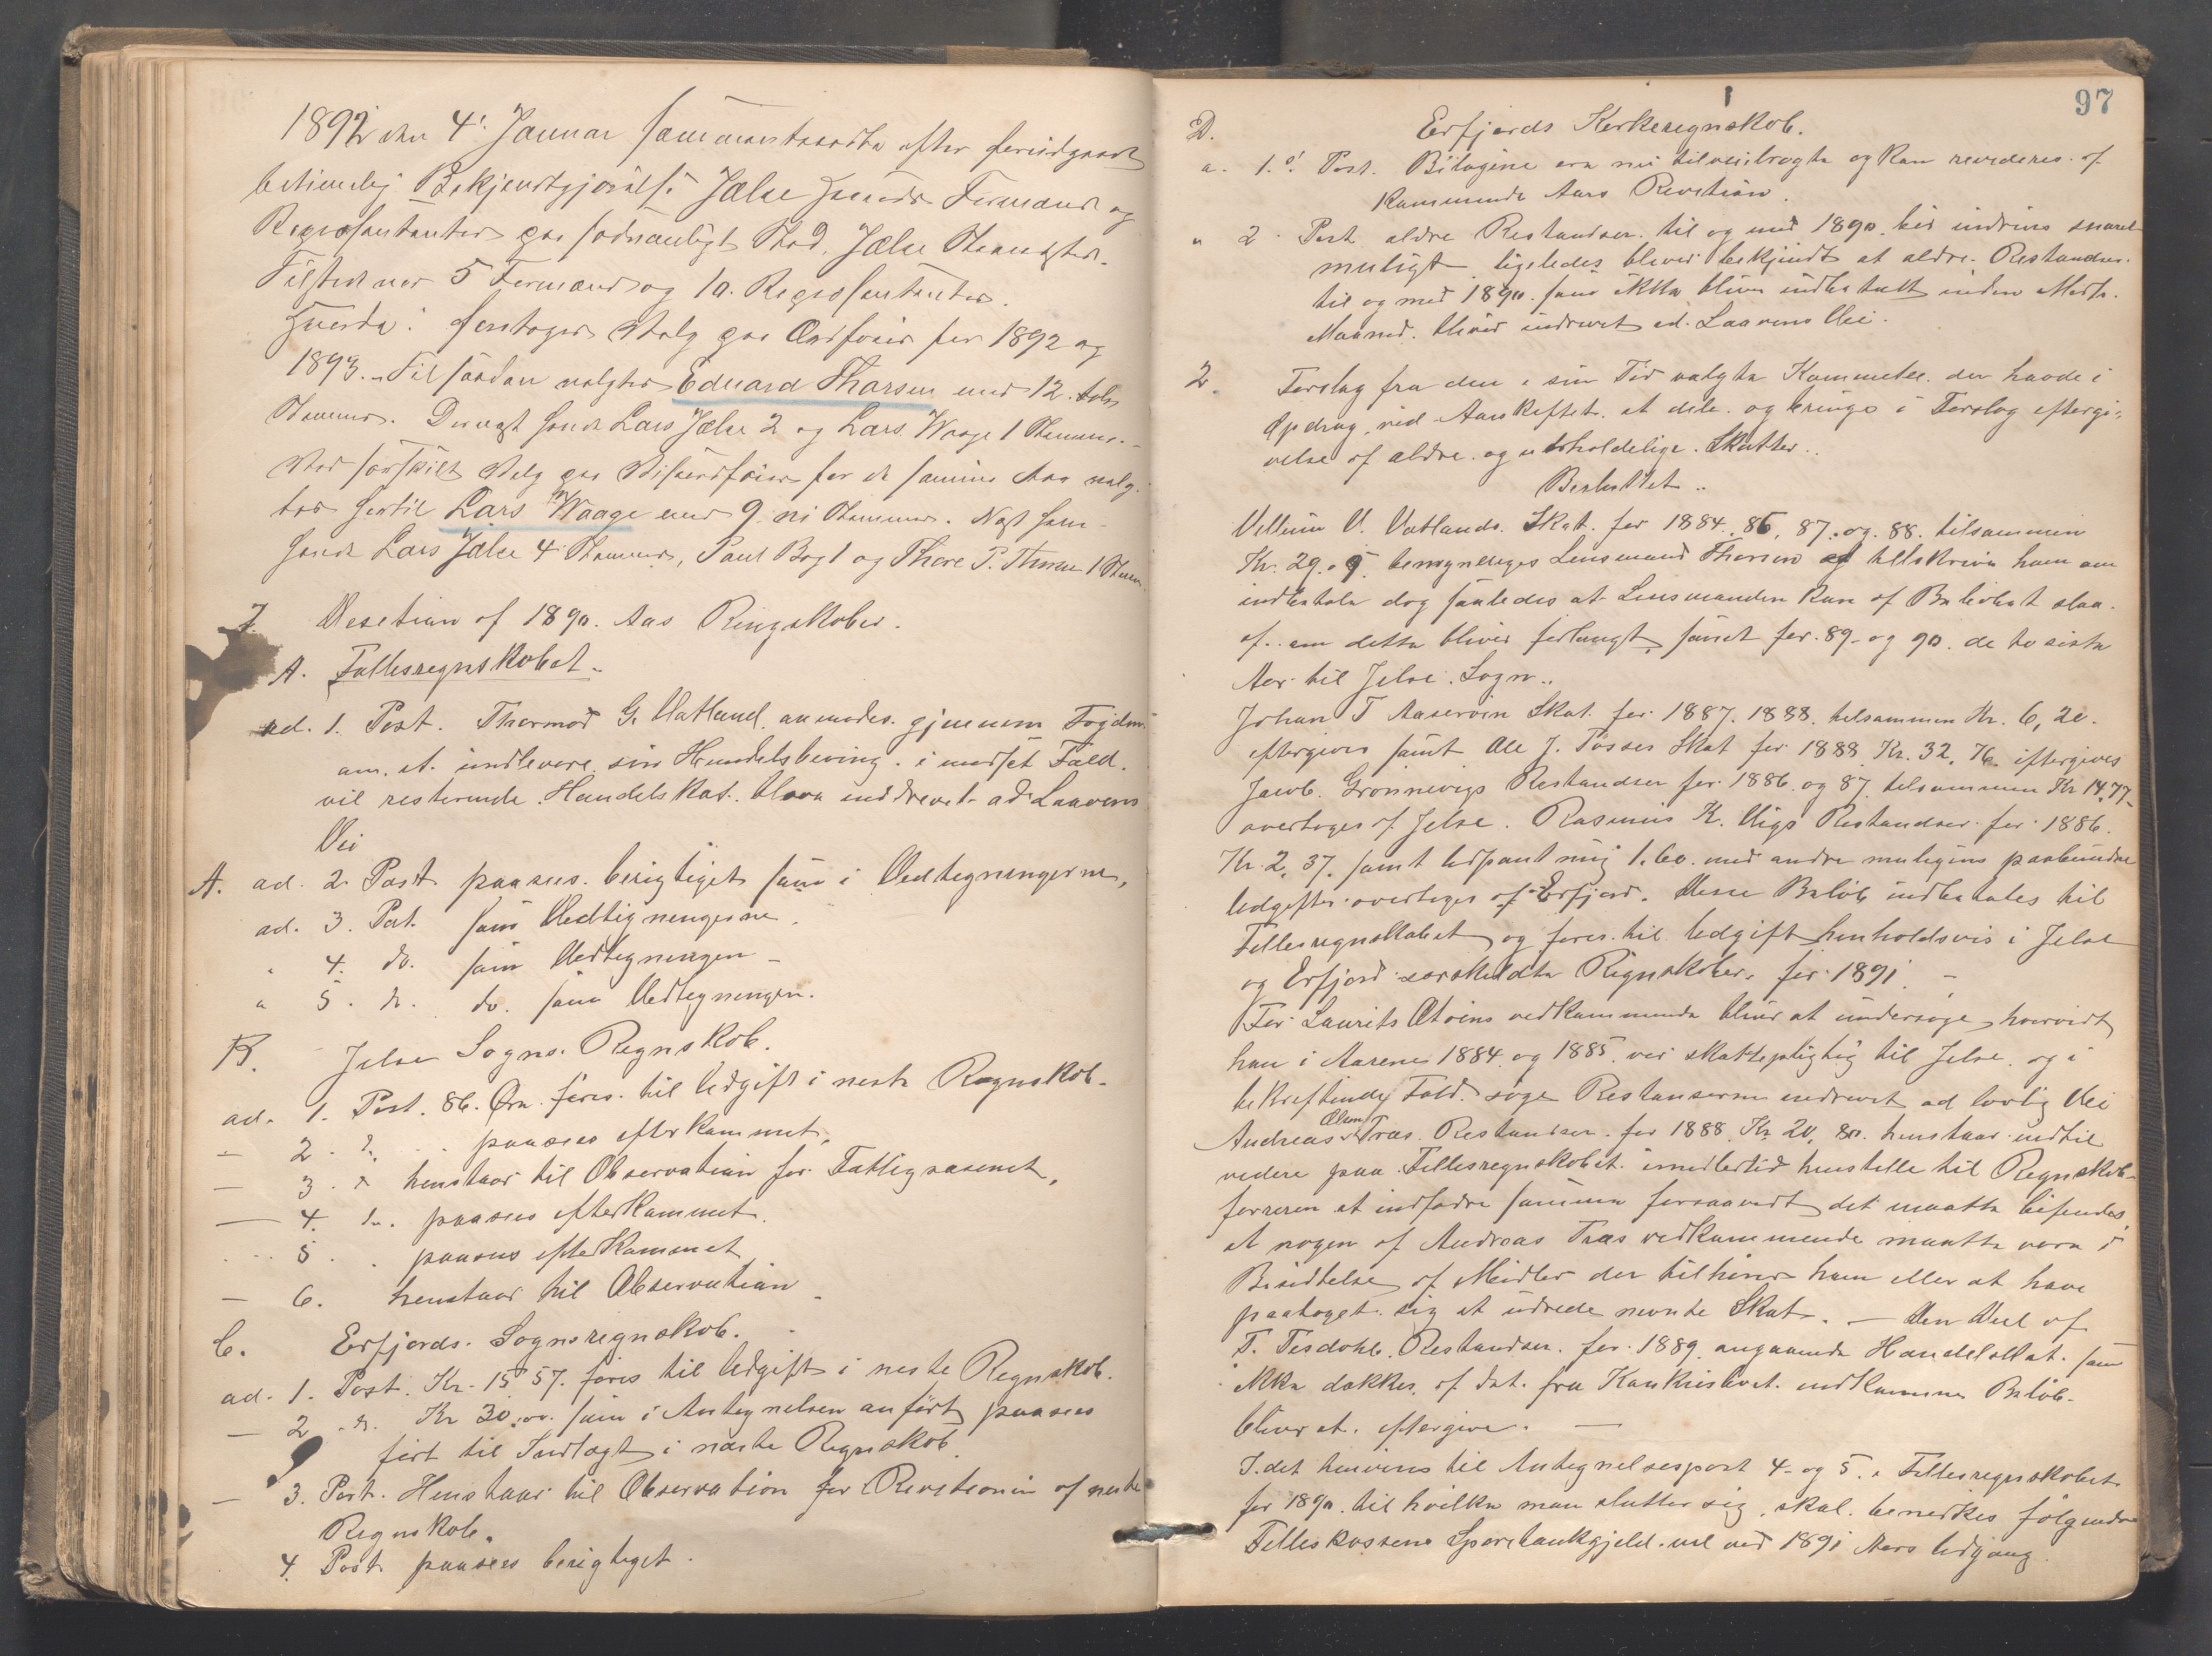 1892 den 4' Januar sammentraadte efter foregaaet
betimelig Bekjendtgjørelse Jælse Herreds Formænd og
Repræsentanter paa sædvanligt Sted, Jælse Thinghus.
Tilstede var 5 Formænd og 10. Repræsentanter.
Hvorda: foretages Valg paa Ordfører for 1892 og
1893. – Til saadan valgtes Eduard Thorsen med 12. tolv
Stemmer. Dernæst havde Lars Jælse 2 og Lars Waage 1 Stemme. –
Ved særskilt Valg paa Viseordfører for de samme Aar valg-
tes hertil Lars Waage med 9 ni Stemmer. Næst ham
havde Lars Jælse 4 Stemmer, Paul Bog 1 og Thore P. 1 Stem.
1. Desetion af 1890. Aas Ringskober.
A. Fællesregnskobet –
ad. 1. Post. Thormod G. Vatland anmodes gjennem Fogden
om at indlevere sin Handelsbeving. i modsat Fald.
vil resterende Handelskat. blive inddrevet ad Laavens
Vei
A. ad. 2 Post paasees berigtiget som i Vedtegningerne,
ad. 3. Post. som Vedtigningerne.
" 4. do. som Vedtegningen –
" 5. do. do. som Vedtegningen.
B. Jelse Sogns. Regnskob.
ad. 1. Post. 86. Øre føres til Udgift i neste Regnskob.
– 2. do. paasees efterkommet.
– 3. " henstaar til Observation for Fattigvæsenet,
– 4. do. paasees efterkommet.
5. paasees efterkommet
– 6. henstaar til Observation –
C. Erfjords. Sognsregnskob.
ad. 1. Post. Kr. 15 57. føres til Udgift i neste Regnskob.
– 2 do. Kr 30,00. som i Antegnelsen anført paasees
ført til Indtægt i næste Regnskob
– 3. Post. Henstaar til Observation for Revisionen af neste
Regnskob.
4. Post paasees berigtiget.
97
D. Erfjords Kerkeregnskob.
a. 1.ste Post. Bilagene era nu tilveiebragte og kan revideres af
kommende Aars Revition.
" 2. Post ældre Restandser til og med 1890. bør inddrives snarest
muligt, ligeledes bliver bekjendt at ældre Restandser
til og med 1890. som ikke bliver indbetalt inden Marts
Maaned. bliver inddrevet ad. Laavens Vei.
2. Forslag fra den i sin Tid valgte Kommetee. der havde i
Opdrag ved Aarskiftet. at dele. og bringe i Forslag eftergi-
velse af ældre og uerholdelige. Skatter..
Besluttet..
Vellum V. Vatlands. Skat. for 1884. 86, 87. og. 88. tilsammen
Kr. 29.09. bemyndiges Lensmand Thorsen at tilskrive ham om
indbetale dog saaledes at Lensmanden kan af Beløbet slaa.
af.. om dette bliver forlangt samt for. 89- og 90. de to siste
Aar til Jelse. Sogn..
Johan T Aaservin Skat. for 1887. 1888. tilsammen Kr. 6,20.
eftergives samt Ole J. Tøsses Skat for 1888 Kr. 32, 76. eftergives
Jacob. Grønnevigs Restandser for 1886 og 87. tilsammen Kr 14,77
overtages af Jelse. Rasmus K. Vigs Restandser for 1886.
Kr. 2, 37. samt Udpantning 1.60. med andre muligens paabundne
Udgifter overtages af Erfjord. Desse Beløb indbetales til
Fellesregnskabet og føres til Udgift henholdsvis i Jelse
og Erfjord særskeldte Regnskober. for 1891. –
For Laurits Østvins vedkommende bliver at undersøge, hvorvidt
han i Aarene 1884 og 1885 var skattepligtig til Jelse. og i
bekreftende Fald. søge Restanserne inddrevet ad lovlig Vei
Andreas Olsen Træs. Restandser for 1888 Kr. 20, 80. henstaar indtil
vedere paa Fellesregnskobet. imidlertid henstille til Regnskob-
føreren at indfodre samme forsaavidt det maatte befindes
at nogen af Andreas Træs vedkommende maatte vere i
Besiddelse af Midler der tilhører ham eller at have
paataget. sig at udrede nevnte Skat. – Den Del af
T. Tesdahls. Restandser. for. 1889. angaaende Handelskat. som
ikke dækkes. af det. fra Konkursboet. indkomne Beløb.
bliver at. eftergive. –
I det henvises til Antegnelsespost 4- og 5. i Fellesregnskobet
for 1890. til hvilke man slutter sig. skal. bemerkes følgende
Felleskassens Sparebankgjeld. vil ved 1891 Aars Udgang.